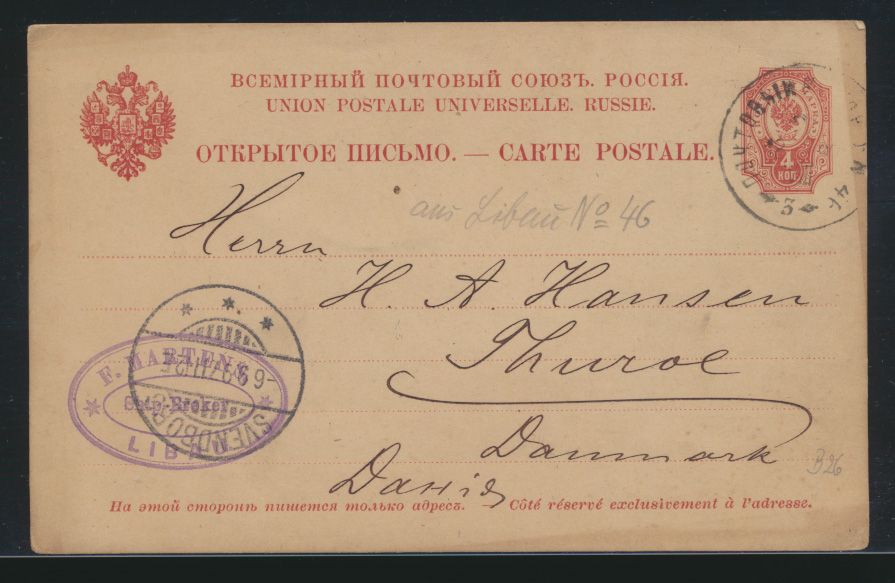 ВСЕМІРНЫЙ ПОЧТОВЫЙ СОЮЗЪ. РОССІЯ.
UNION POSTALE UNIVERSELLE. RUSSIE.
ОТКРЫТОЕ ПИСЬМО. — CARTE POSTALE.
4
КОП
3
aus Libau No 46
Herrn
H. A. Hansen
Thuroe
Danmark
Данія
F. MARTENS
Ship-Broker
LIBAU
SVENDBORG
B26
На этой сторонѣ пишется только адресъ. — Côté réservé exclusivement à l'adresse.